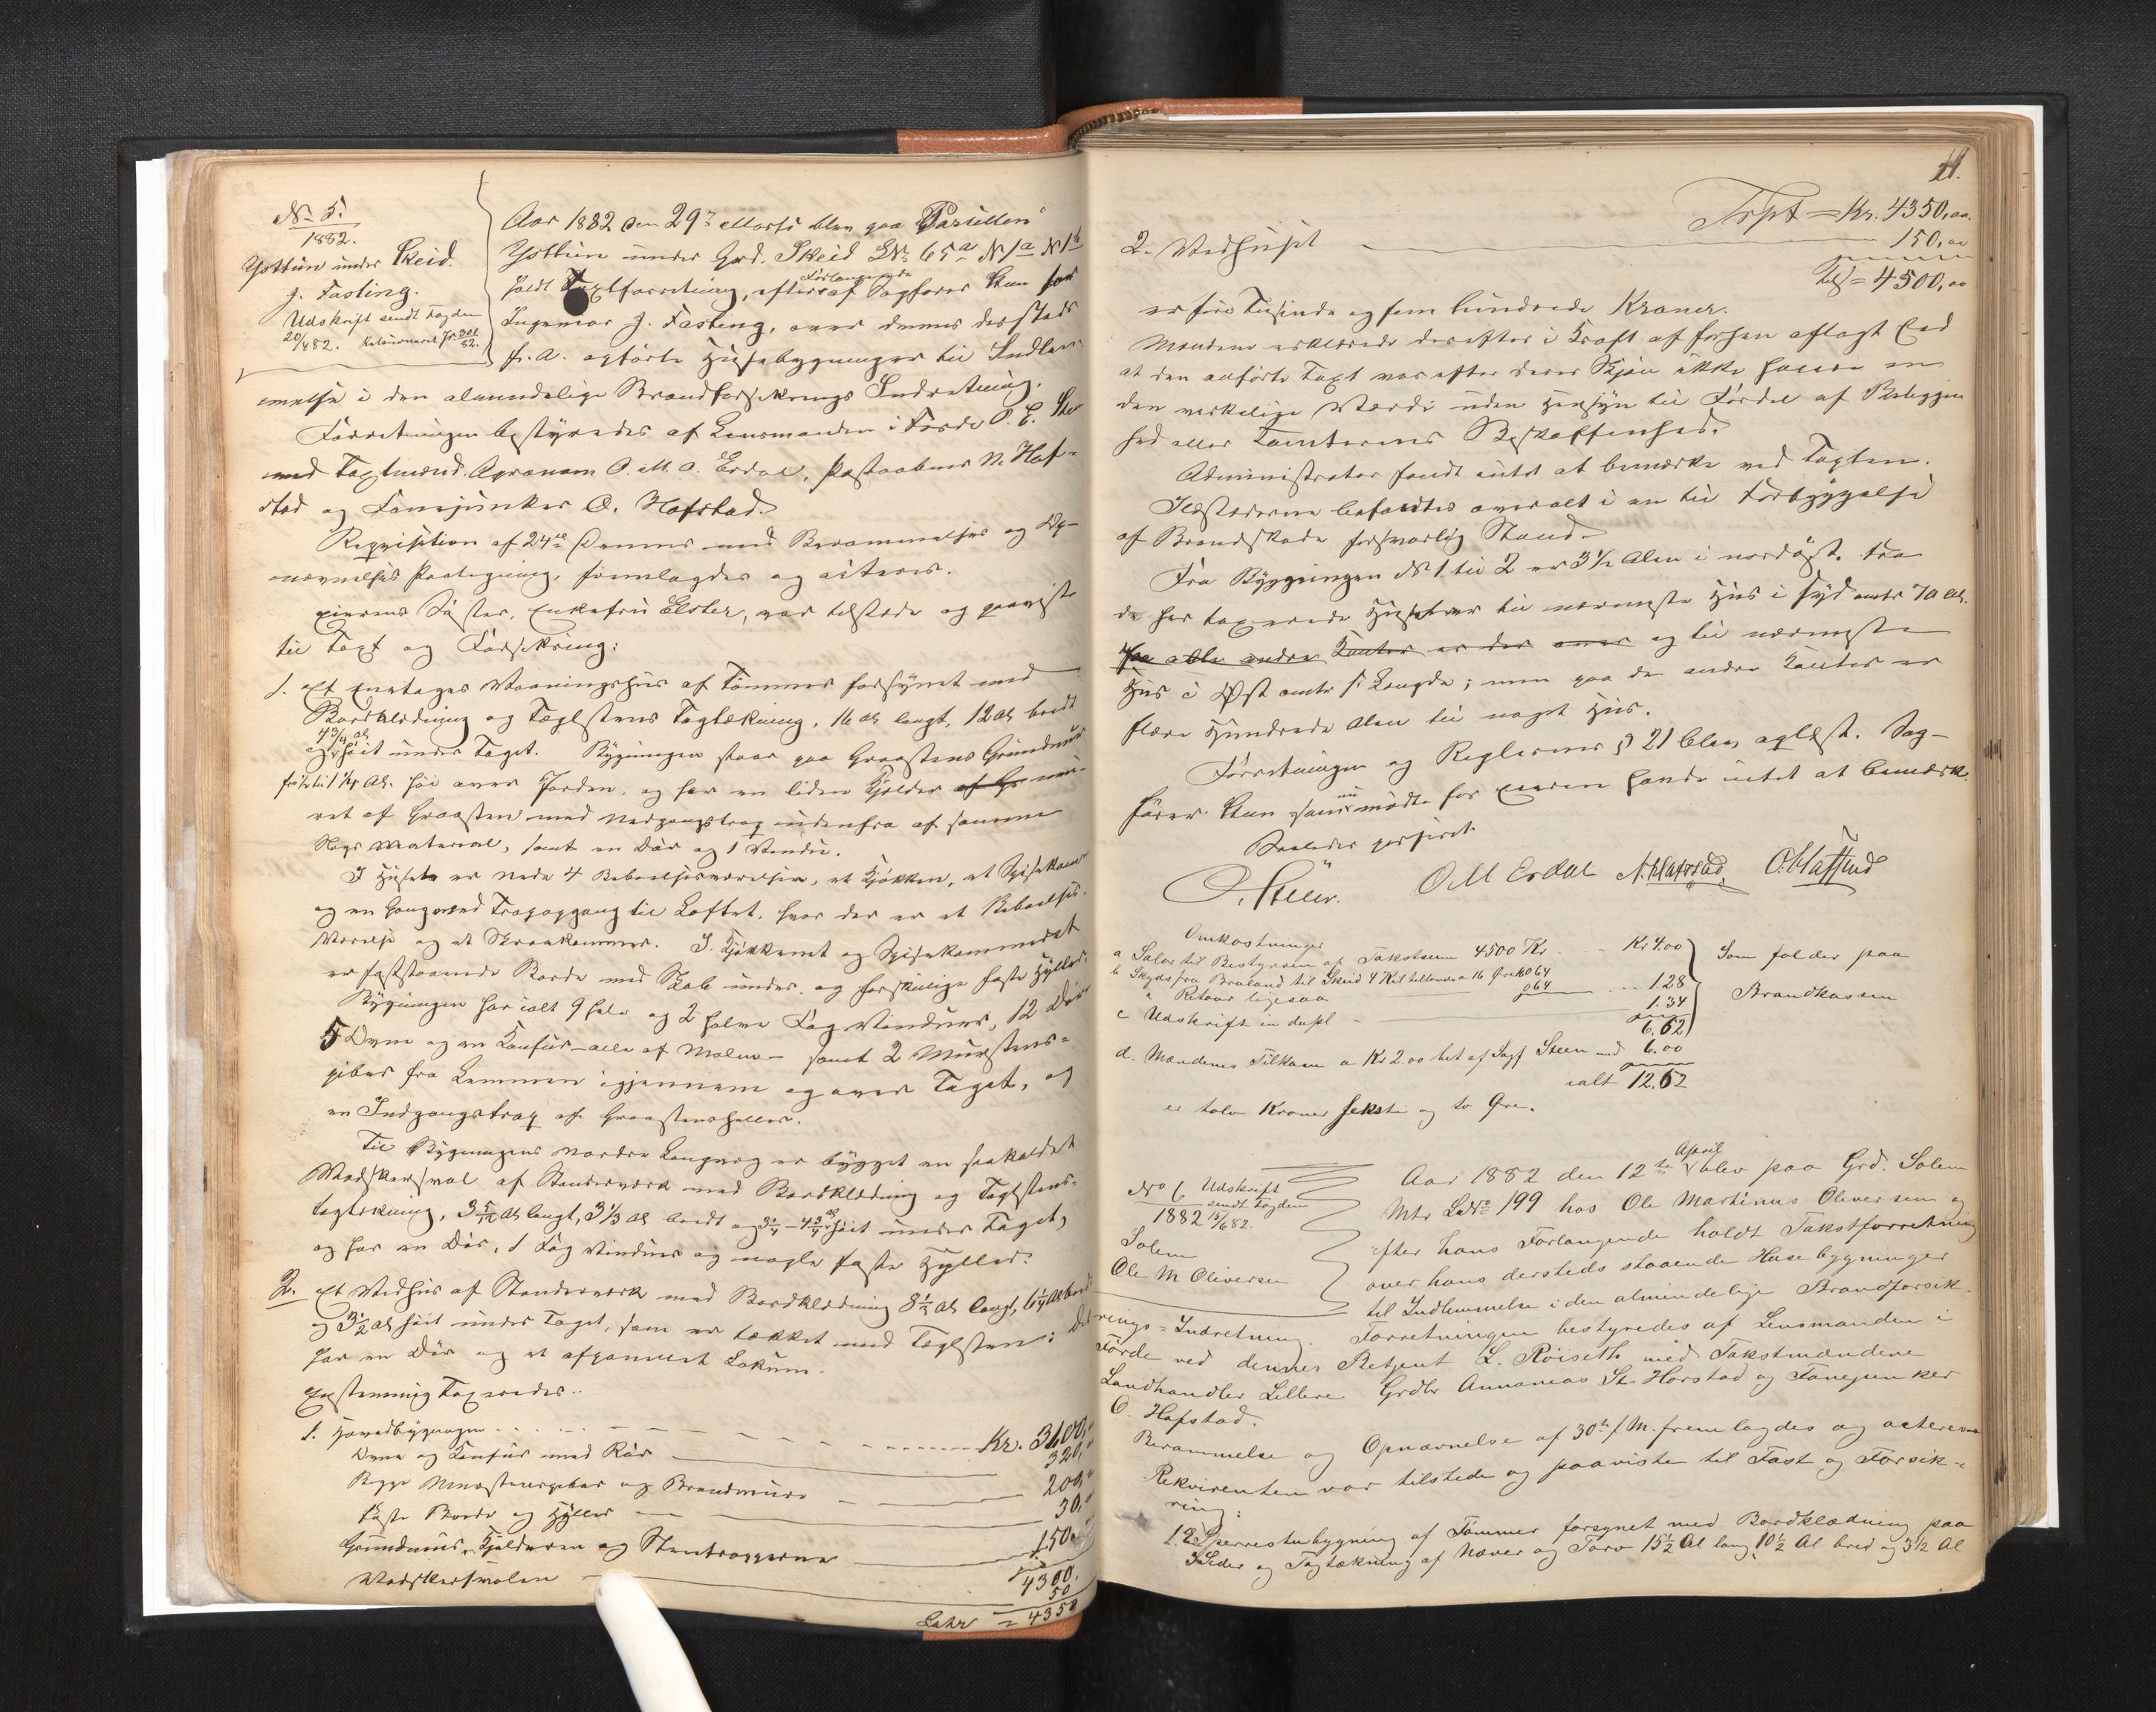 No 5.
1882.
Ysttun under Skeid.
J. Fasting.
Udskrift sendt Fogden
20/4 82. Returneret
Aar 1882 den 29de Marts blev paa Parcellen
Ysttun under Grd. Skeid LNr 65a No 1a No 1b
holdt Taxtforretning, efter Forlangende af Sagfører Steen for
Ingeniør J. Fasting, over dennes dersteds
fr. a. opførte Husebygninger til Indlem-
melse i den almindelige Brandforsikrings Indretning.
Forretningen bestyredes af Lensmanden i Førde O. E.
med Taxtmænd Agronom O. M. O. Erdal, Postaabner N. Haf-
stad og Fanejunker O. Hafstad.
Requisition af 24de dennes med Berammelses og Op-
nævnelses Paategning, fremlagdes og acteres.
Eierens Søster, Enkefru Elster, var tilstede og paaviste
til Taxt og Forsikring:
1. Et enetages Vaaningshus af Tømmer forsynet med
Bordklædning og Teglstens Tagtækning, 16 Al langt, 12 Al bredt
og 4 3/4 Al høit under Taget. Bygningen staar paa Graastens Grundmur
fra 1/2 til 1 1/4 Al. høi over Jorden, og har en liden Kjelder af Gr mu-
ret af Graasten med Nedgangstrap udenfra af samme
Slags Material, samt en Dør og 1 Vindu.
I Huset er nede 4 Beboelsesværelser, et Kjøkken, et Spisekam
og en Gang med Trapopgang til Loftet, hvor der er et Beboelses-
Værelse og et Skraakammer. I Kjøkkenet og Spisekammeret
er faststaaende Borde med Skab under, og forskjellige faste Hylder.
Bygningen har ialt 9 hele og 2 halve Fag Vinduer, 12 Døre
5 Ovne og en Komfur – alle af Malm – samt 2 Murstens-
piber fra Lemmen igjennem og over Taget, og
en Indgangstrap af Graastensheller.
Til Bygningens nordre Langvæg er bygget en saakaldet
Vadskersval af Standerværk med Bordklædning og Teglstens-
tagtækning, 3 5/12 Al langt, 3 1/3 Al bredt og 3 1/4 – 4 3/4 Al høit under Taget,
og har en Dør, 1 Fag Vinduer og nogle faste Hylder.
2. Et Vedhus af Standerværk med Bordklædning 8 1/2 Al langt, 6 1/4 Al bredt
og 3 1/2 Al høit under Taget, som er tækket med Teglsten; det
har en Dør og et afpanelet Lokum.
Enstemmig taxeredes:
1. Hovedbygningen Kr. 3600,
Ovne og Komfur med Rør 320,
Begge Murstenspiber og Brandmure 200,
Faste Borde og Hylder 30,
Grundmur, Kjelderen og Stentrapperne 150
4300.
Vadskersvalen 50
Latr = 4350
21.
Trspt = Kr. 4350,00.
2. Vedhuset 150,00
Tils = 4500,00
er fire Tusinde og fem hundrede Kroner.
Mændene erklærede derefter i Kraft af forhen aflagt Eed
at den anførte Taxt var efter deres Skjøn ikke høiere en
den virkelige Værdi uden Hensyn til Fordel af Beliggen
hed eller Tomternes Beskaffenhed.
Administrator fandt intet at bemærke ved Taxten.
Ildstederne befandtes overalt i en til Forbyggelse
af Brandskade forsvarlig Stand.
Fra Bygningen No 1 til 2 er 3 1/2 Alen i nordøst. Fra
de her taxerede Huse er til nærmeste Hus i Syd omtr 70 Al.
Paa alle andre Kanter er der over og til nærmeste
Hus i Øst omtr s. Længde; men paa de andre Kanter er
flere Hundrede Alen til noget Hus.
Forretningen og Reglernes § 21 blev oplæst. Sag-
fører Steen som nu mødte for Eieren havde intet at bemærke.
Saaledes passeret.
O. Steen. O M Erdal N. Hafstad, O. Hafstad
Omkostninger
a Salær til Bestyreren af Takstsum 4500 Kr Kr 4.00
b Skyds fra Bruland til Skeid 4 Kil tillands a 16 Øre Kr 0 64
" Retour ligesaa 0 64 1.28
c Udskrift in dupl 1.34
6.62
Som falder paa
Brandkassen
d. Mændenes Tilkom a Kr 2.00 bet af Sagf Steen med 6.00
ialt 12.62
er tolv Kroner seksti og to Øre.
No 6 Udskrift
1882 sendt Fogden
13/6 82.
Solem
Ole M Oliversen
Aar 1882 den 12te April blev paa Grd. Solem
Mtr LNo 199 hos Ole Martinus Oliversen og
efter hans Forlangende holdt Takstforretning
over hans dersteds staaende Huse bygninger
til Indlemmelse i den almindelige Brandforsik-
rings-Indretning. Forretningen bestyredes af Lensmanden i
Förde ved dennes Betjent L. Röiseth med Takstmændene
Landhandler Lillere Grdbr Annanias St. Horstad og Fanejunker
O. Hafstad.
Berammelse og Opnævnelse af 30te f M. fremlagdes og acteres
Rekvirenten var tilstede og paaviste til Tast og Forsik-
ring:
1. E Sperrestubygning af Tömmer forsynet med Bordklædning paa
3 Sider og Tagtækning af Næver og Torv 15 1/2 Al lang 10 1/2 Al bred og 3 1/2 Al